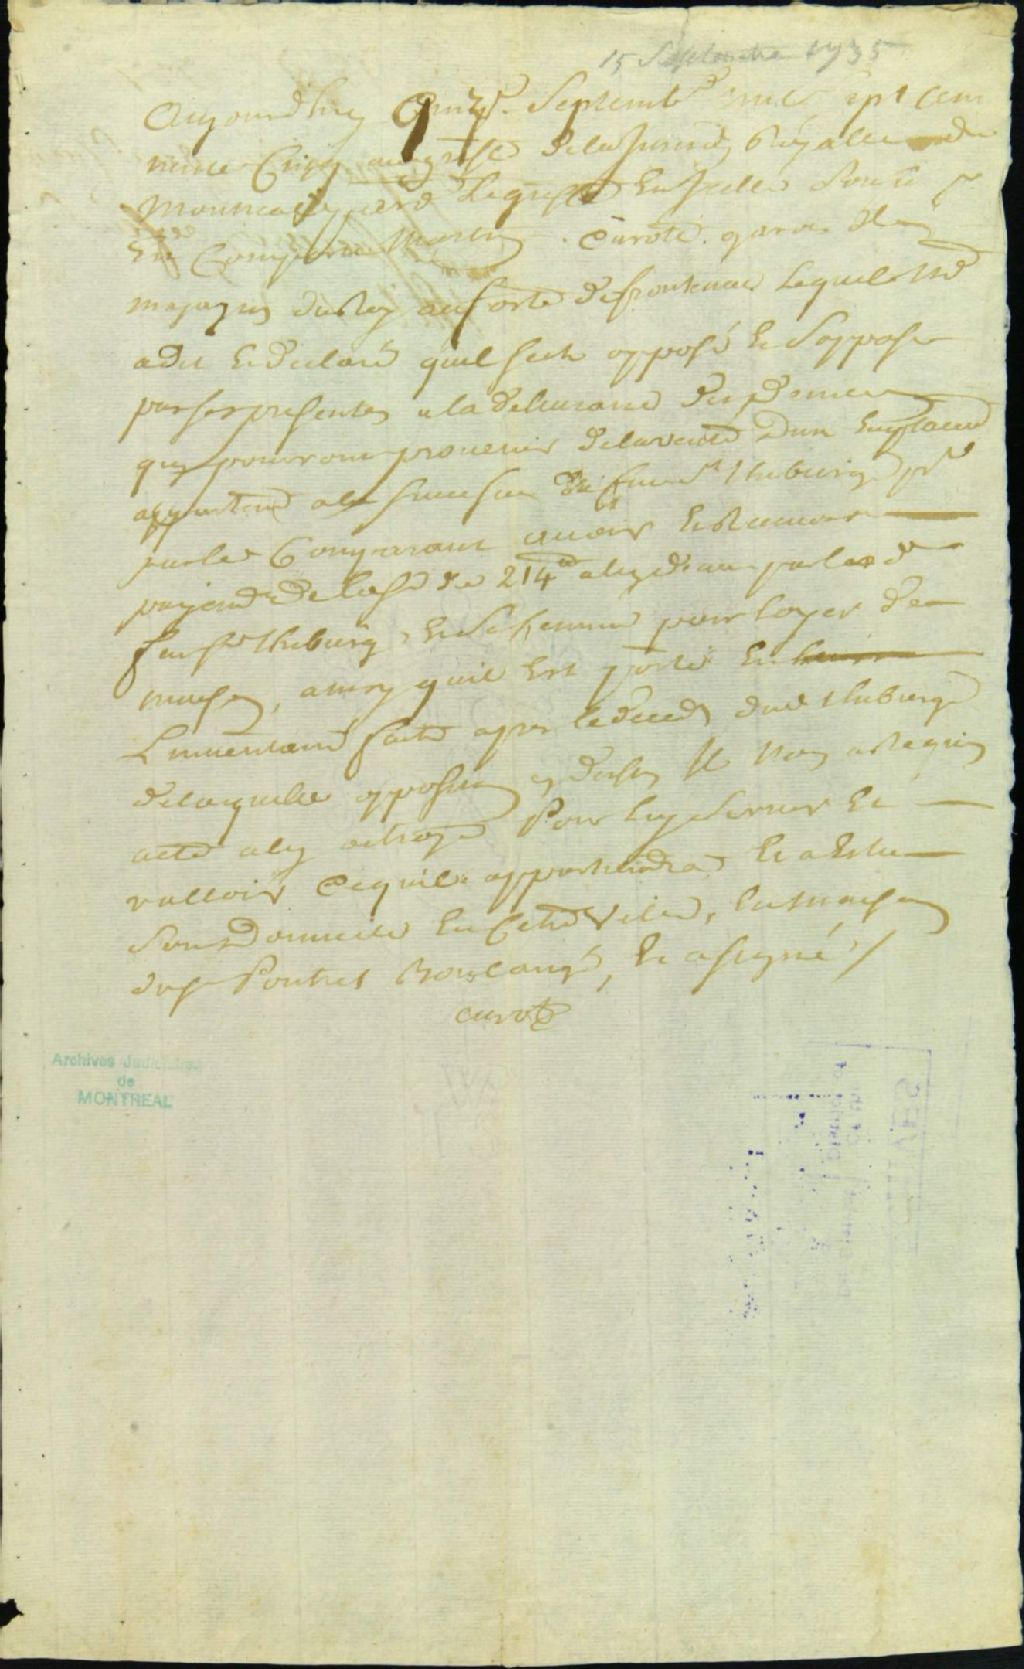 15 Septembre 1735
Aujourdhuy quinze Septembre mil sept cent
trente Cinq au greffe dela Jurisd Royalle de
Montreal
Est Comparu Martin Curotte garde des
magazins du Roy au forte de frontenac Lequel Nd
adit et declaré quil sest opposé et Soppose
par ses presentes a la deliurance des deniers
quy pouront prouenir delavente Dun Emplacem
appartent ala succession de feu Sr thuberge pr
par led Comparant auoir
payemt de la so de 214 a luy deue par led
feu Sr thuberge et sa femme pour loyer de
maison, ainsy quil Est porté En
Linuentaire faite apres le deceds dud thuberge
delaquelle opposition Il Nous a requis
acte a luy octroyé Pour luy Seruir Et
valloir Cequil appartiendra Et a Eslu
Son domicile En Cette Ville, En la maison
du Sr Boulangé, Et a signé /
curotte
Archives Judiciaires
de
MONTREAL